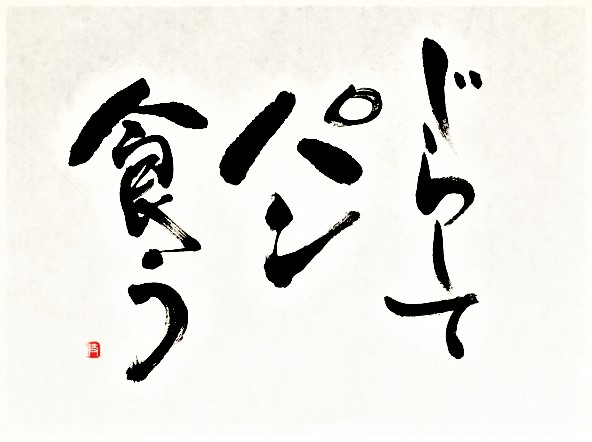 じらして
パン
食う